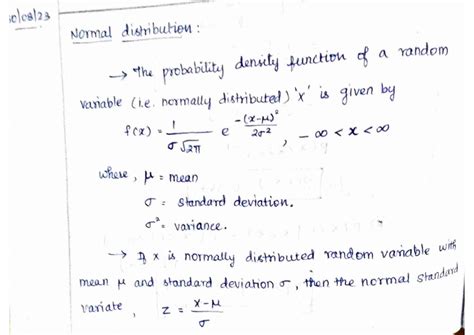 10/08/23
Normal distribution :
→ The probability density function of a random
variable (i.e. normally distributed) 'x' is given by
f(x) = 1/(σ√2π) e^(-(x-μ)²/2σ²) , -∞ < x < ∞
where, μ = mean
σ = standard deviation.
σ² = variance.
→ If x is normally distributed random variable with
mean μ and standard deviation σ, then the normal standard
variate, z = (x-μ)/σ